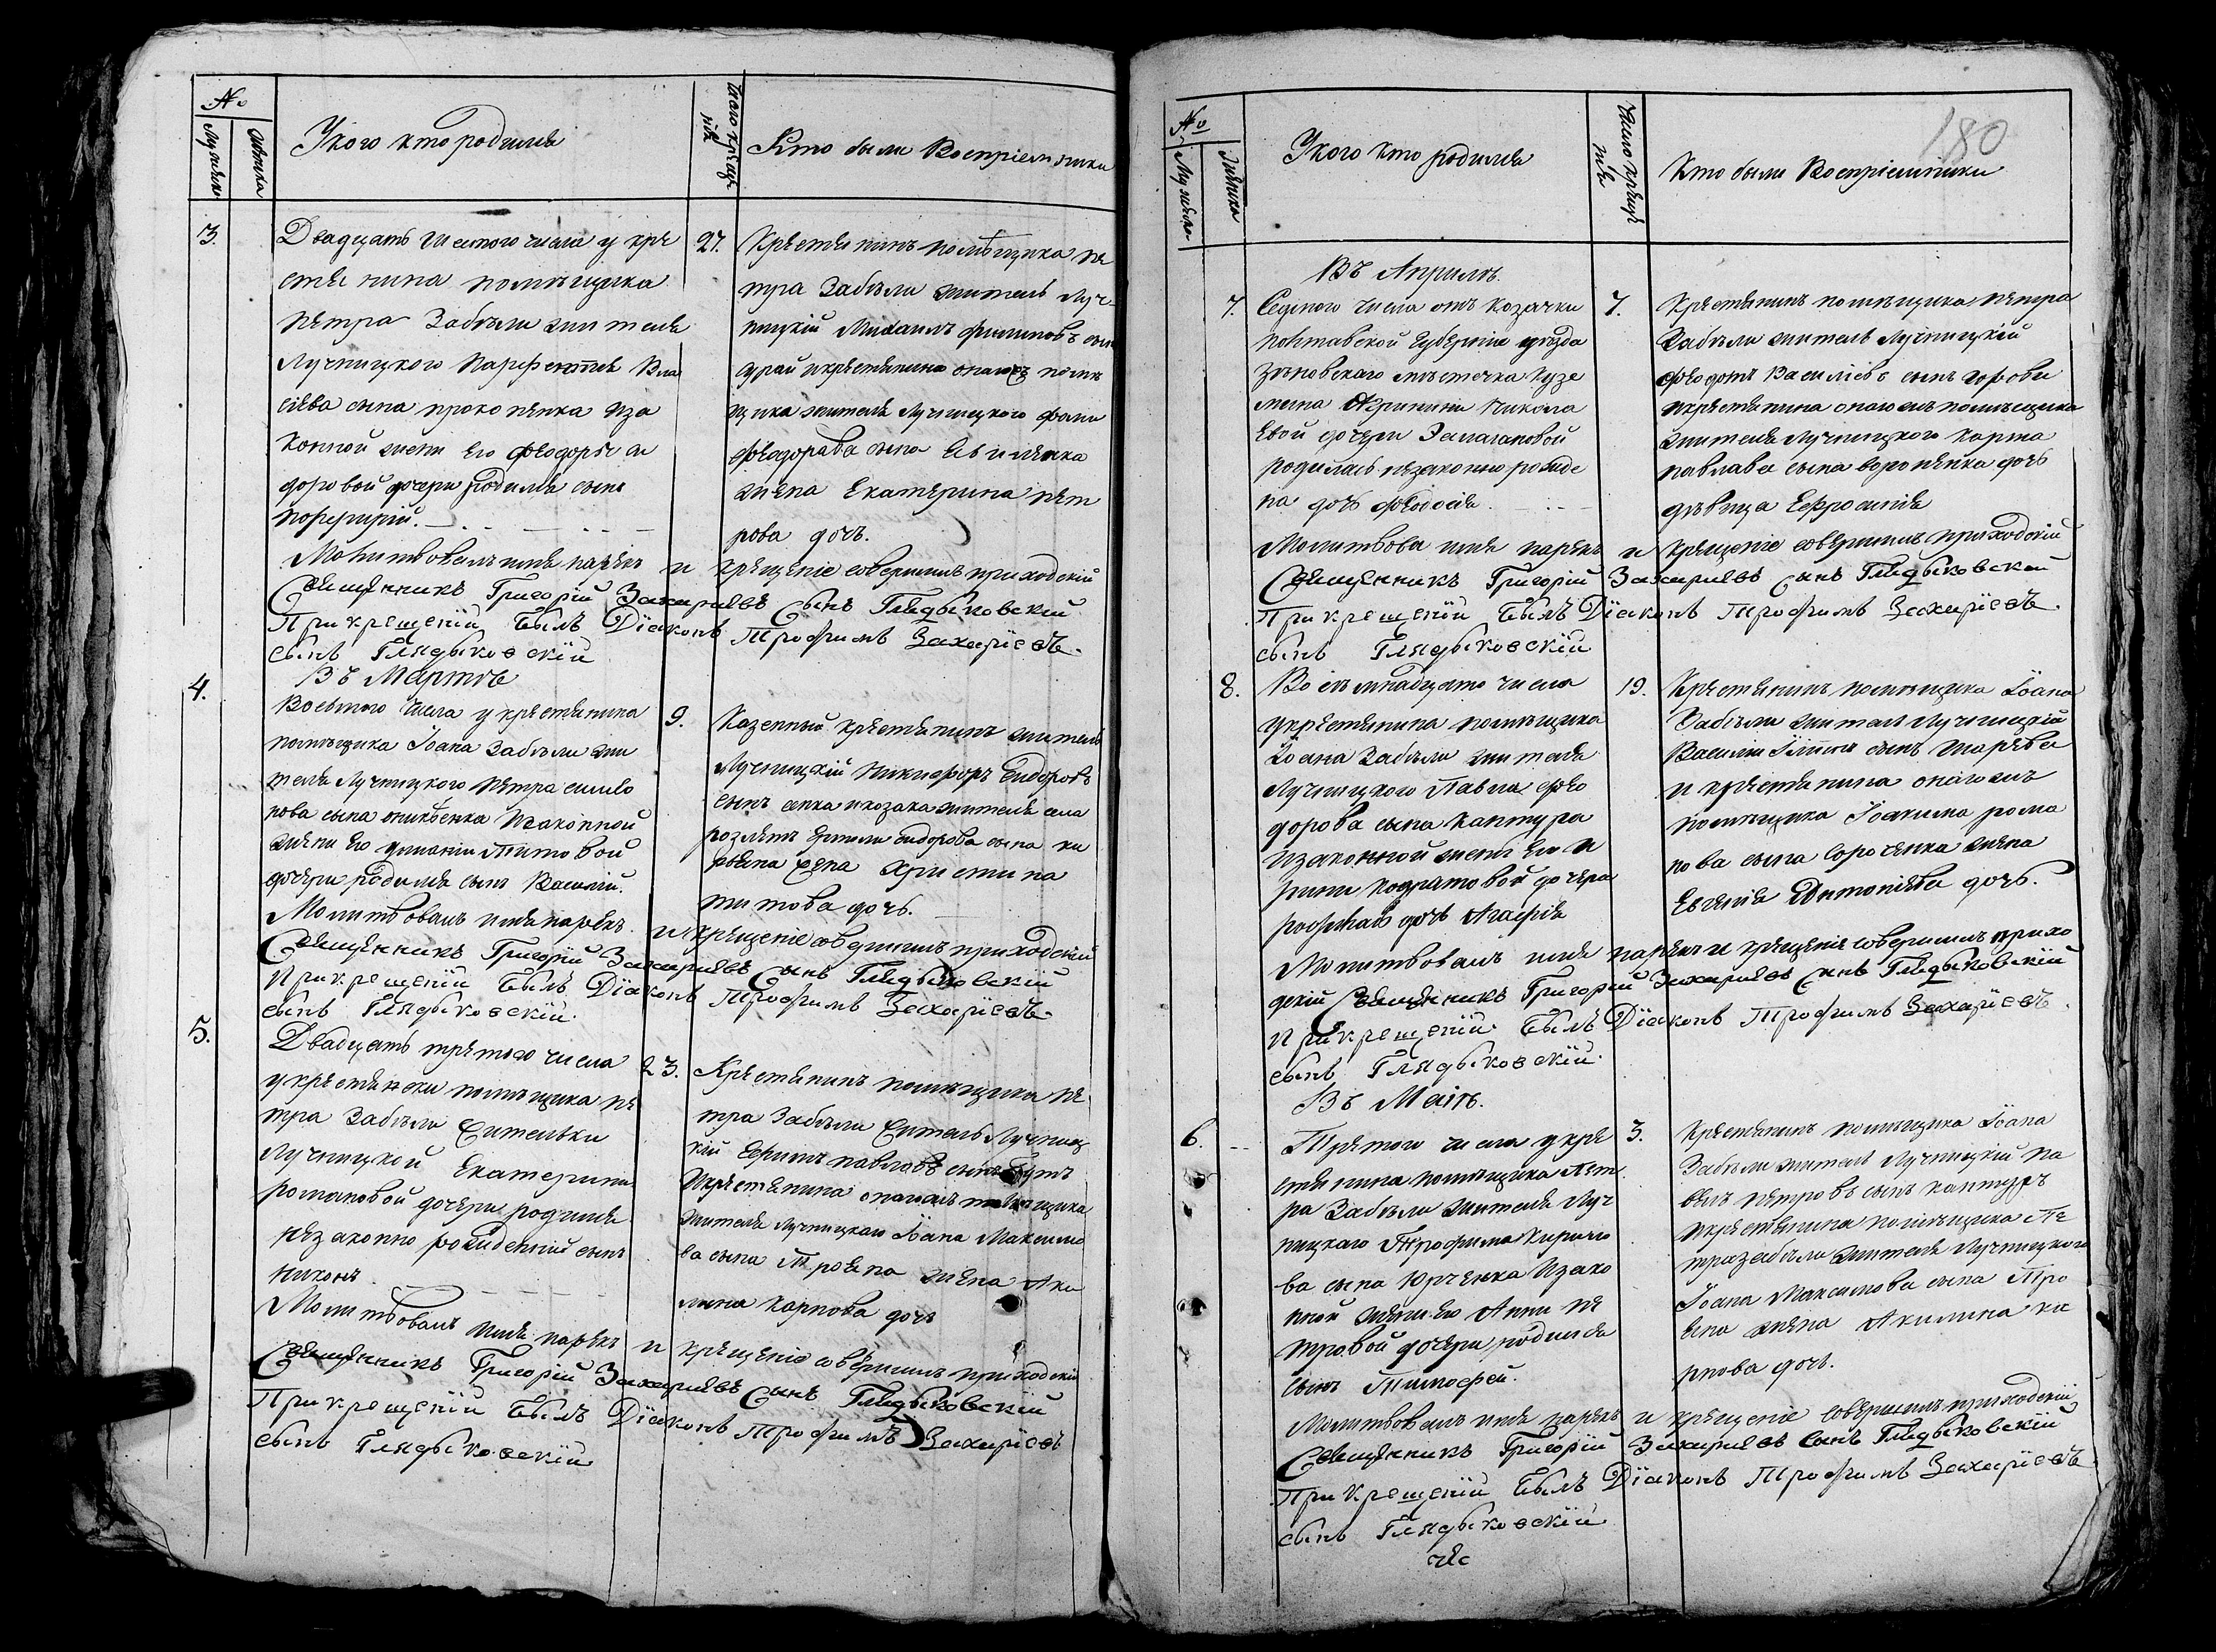 №
Мужеска
Женска
У кого кто родился
Число креще
нія
Кто были Воспріемники
3.
Двадцать шестого числа у кре
стянина помѣщика
Петра Забѣли жителя
Лучницкого Парфентія Вла
сіева сына прокопенка иза
конной жени его феодоры си
доровой дочери родился сынъ
порфирій.
27.
Крестянинъ помѣщика пе
тра Забѣли житель Луч
ницкій Михаилъ филиповъ сынъ
и крестянина оногожъ помѣ
щика жителя Лучницкого фоми
феодорова сына
жена Екатерина пет
рова дочь.
Молитвовалъ имя нарекъ и крещеніе совершилъ приходскій
Священникъ Григорій Захаріевъ Сынъ Гладыковскій
При крещеніи былъ Діаконъ Трофимъ Захаріевъ
сынъ Гладыковскій
Въ Мартѣ
4.
Восьмого числа у крестянина
помѣщика Іоана Забѣли жи
теля Лучницкого Петра симо
нова сына оникѣенка изаконной
жени его уліянии Титовой
дочери родился сынъ Василій.
9.
Казенный крестянинъ житель
Лучницкій Никифоръ Сидоровъ
сынъ сенка и козака жителя села
розлетъ Сидорова сына ки
жена Христина
титова дочь.
Молитвовалъ имя нарекъ и крещеніе совершилъ приходскій
Священникъ Григорій Захаріевъ Сынъ Гладыковскій
При крещеніи былъ Діаконъ Трофимъ Захаріевъ
сынъ Гладыковскій.
5.
Двадцать третого числа
у крестянски помѣщика пе
тра Забѣли жительки
Лучницкой Екатерини
романовой дочери родился
незаконно рожденний сынъ
Никонъ
23.
Крестянинъ помѣщика пе
тра Забѣли житель Лучниц
кій Ефимъ павловъ сынъ
и крестянина оногожъ помѣщика
жителя Лучницкаго Іоана Максимо
ва сына Трояна жена Аки
лина Карпова дочь
Молитвовалъ имя нарекъ и крещеніе совершилъ приходскій
Священникъ Григорій Захаріевъ Сынъ Гладыковскій
При крещеніи былъ Діаконъ Трофимъ Захаріевъ
сынъ Гладыковскій
180
№
Мужеска
Женска
У кого кто родился
Число креще
нія
Кто были Воспріемники
Въ Априлѣ
7.
Седмого числа отъ козачки
Полтавской Губерніи уѣзда
Зѣнковскаго мѣстечка Кузе
мина Иринини Никола
евой дочери
родилась незаконно рожде
на дочь феодосія.
7.
Крестянинъ помѣщика петра
Забѣли житель Лучницкій
феодотъ Василіевъ сынъ
и крестянина оногожъ помѣщика
жителя Лучницкого Карпа
павлова сына воропенка дочь
дѣвица Ефросинія
Молитвова имя нарекъ и крещеніе совершилъ приходскій
Священникъ Григорій Захаріевъ Сынъ Гладыковскій
При крещеніи былъ Діаконъ Трофимъ Захаріевъ.
сынъ Гладыковскій
8.
Восемнадцато числа
у крестянина помѣщика
Іоана Забѣли жителя
Лучницкого Павла фео
дорова сына каптура
изаконной жени его и
рини кодратовой дочери
родилась дочь Агафія
19.
Крестянинъ помѣщика Іоана
Забѣли житель Лучницкій
Василій сынъ
и крестянина оногожъ
помѣщика Іоакима рома
нова сына Сороченка жена
Евгенія Антоніева дочь.
Молитвовалъ имя нарекъ и крещеніе совершилъ прихо
дскій Священникъ Григорій Захаріевъ Сынъ Гладыковскій
При крещеніи былъ Діаконъ Трофимъ Захаріевъ.
сынъ Гладыковскій.
Въ Маіѣ.
6.
Третого числа у кре
стянина помѣщика Пет
ра Забѣли жителя Луч
ницкаго Трофима Кирило
ва сына Юрченка изако
нной жени его Анни пе
тровой дочери родился
сынъ Тимофей.
3.
Крестянинъ помѣщика Іоана
Забѣли житель Лучницкій па
велъ петровъ сынъ каптуръ
и крестянина помѣщика Пе
тра забѣли жителя Лучницкого
Іоана Максимова сына Тро
яна жена Акилина ка
рпова дочь.
Молитвовалъ имя нарекъ и крещеніе совершилъ приходскій
Священникъ Григорій Захаріевъ Сынъ Гладыковскій
При крещеніи былъ Діаконъ Трофимъ Захаріевъ
сынъ Гладыковскій